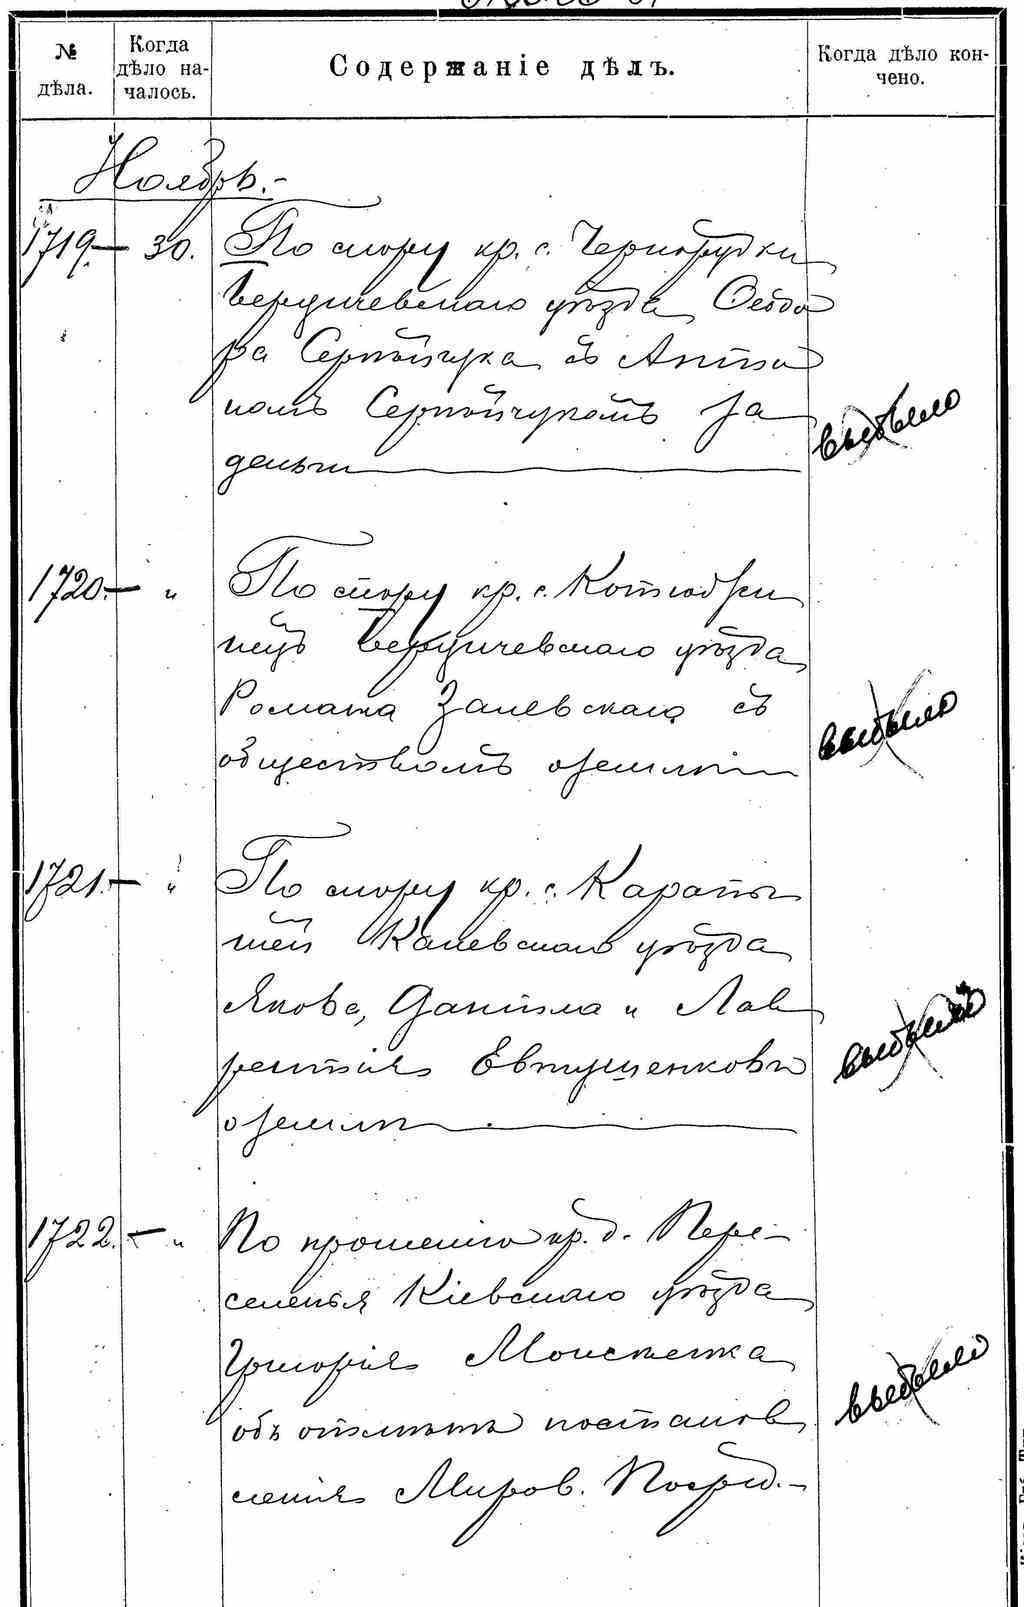 № дѣла.
Когда дѣло на-
чалось.
Содержаніе дѣлъ.
Когда дѣло кон-
чено.
Ноябрь.-
1719.— 30. По спору кр. с. Чернорудки
Бердичевскаго уѣзда Ѳеодо
ра Сергѣйчука съ Анто
номъ Сергѣйчукомъ за
деньги
выбыло
1720.— " По спору кр. с. Котюбжи
нецъ Бердичевскаго уѣзда
Романа Залевскаго съ
обществомъ о землѣ
выбыло
1721.— " По спору кр. с. Карапы
шей Каневскаго уѣзда
Якова, Данила и Лав
рентія Евтушенковъ
о землѣ
выбыло
1722.— " По прошенію кр. д. Пере-
селенья Кіевскаго уѣзда
Григорія Моисеенка
объ отмѣнѣ постанов
ленія Миров. Посред.-
выбыло